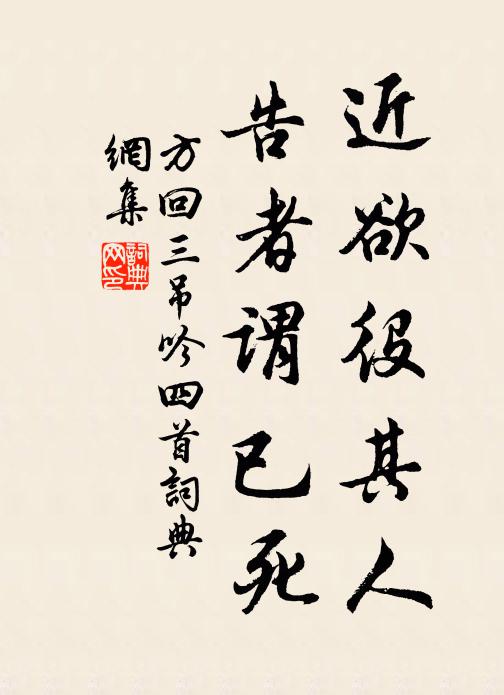 近欲役其人
告者謂已死
方回三吊吟四首詞典
網集
詞典網印